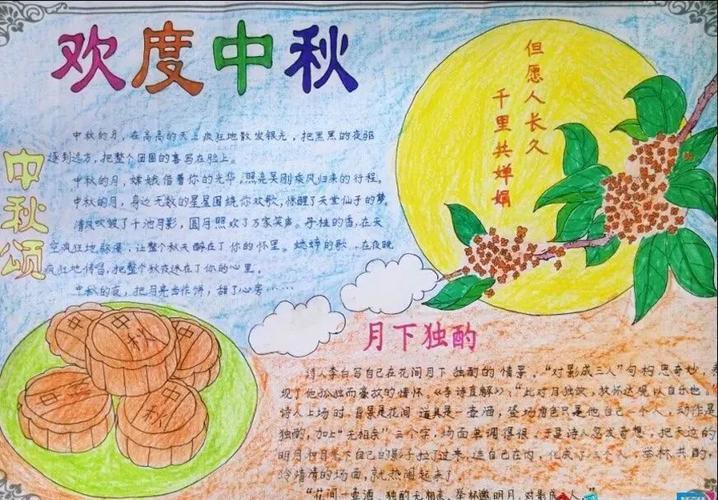 欢度中秋
但愿人长久
千里共婵娟
中秋颂
中秋的月,在高高的天上疯狂地散发银光,把黑黑的夜驱
逐到远方,把整个团圆的喜写在脸上。
中秋的月,嫦娥借着你的光华,照亮吴刚疾风归来的行程。
中秋的月,身边无数的星星围绕你欢歌,惊醒了天堂仙子的梦
清风吹皱了十池月影,圆月照欢了万家笑声。丹桂的香,在天
空疯狂地弥漫,让整个秋天醉在了你的怀里。蟋蟀的歌,在夜晚
疯狂地传唱,把整个秋夜迷在了你的心里。
中秋的夜,把月亮当作饼,甜了心房……
中秋
中秋
中秋
月下独酌
诗人李白写自己在花间月下独酌的情景。“对影成三人”句构思奇妙,表
现了他孤独而豪放的情怀。《李诗直解》:“此对月独饮,放怀达观以自乐也。
诗人上场时,背景是花间,道具是一壶酒,登场角色只是他自己一个人,动作是
独酌,加上“无相亲”三个字,场面单调得很。于是诗人忽发奇想,把天边的
明月和月光下自己的影子拉了过来,连自己在内,化成了三个人,举杯共酌,
冷清清的场面,就热闹起来了
“花间一壶酒,独酌无相亲。举杯邀明月,对影成三人。”